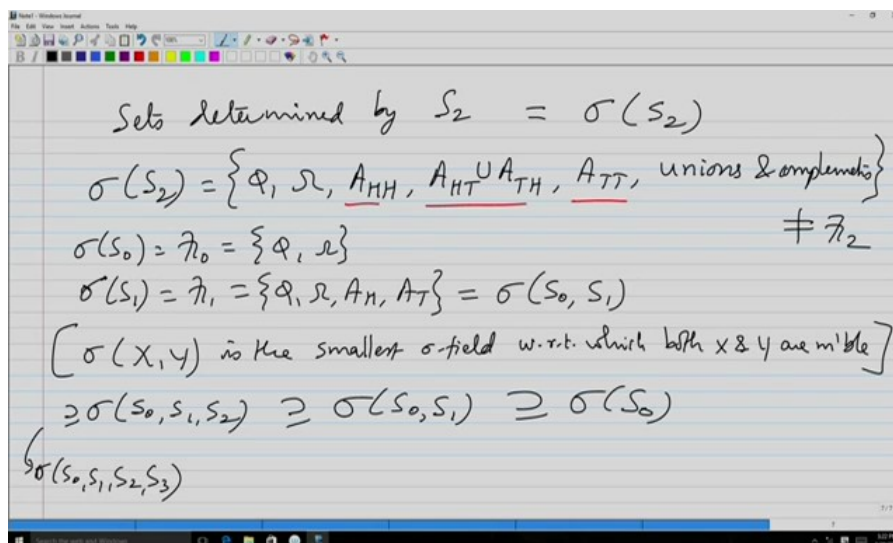 Note1 - Windows Journal
File Edit View Insert Actions Tools Help
B I
Sets determined by S₂ = σ(S₂)
σ(S₂) = {Φ, Ω, A_HH, A_HT ∪ A_TH, A_TT, unions & complements}
≠ ℱ₂
σ(S₀) = ℱ₀ = {Φ, Ω}
σ(S₁) = ℱ₁ = {Φ, Ω, A_H, A_T} = σ(S₀, S₁)
[σ(X, Y) is the smallest σ-field w.r.t. which both X & Y are m'ble]
⊇ σ(S₀, S₁, S₂) ⊇ σ(S₀, S₁) ⊇ σ(S₀)
σ(S₀, S₁, S₂, S₃)
Search the web and Windows